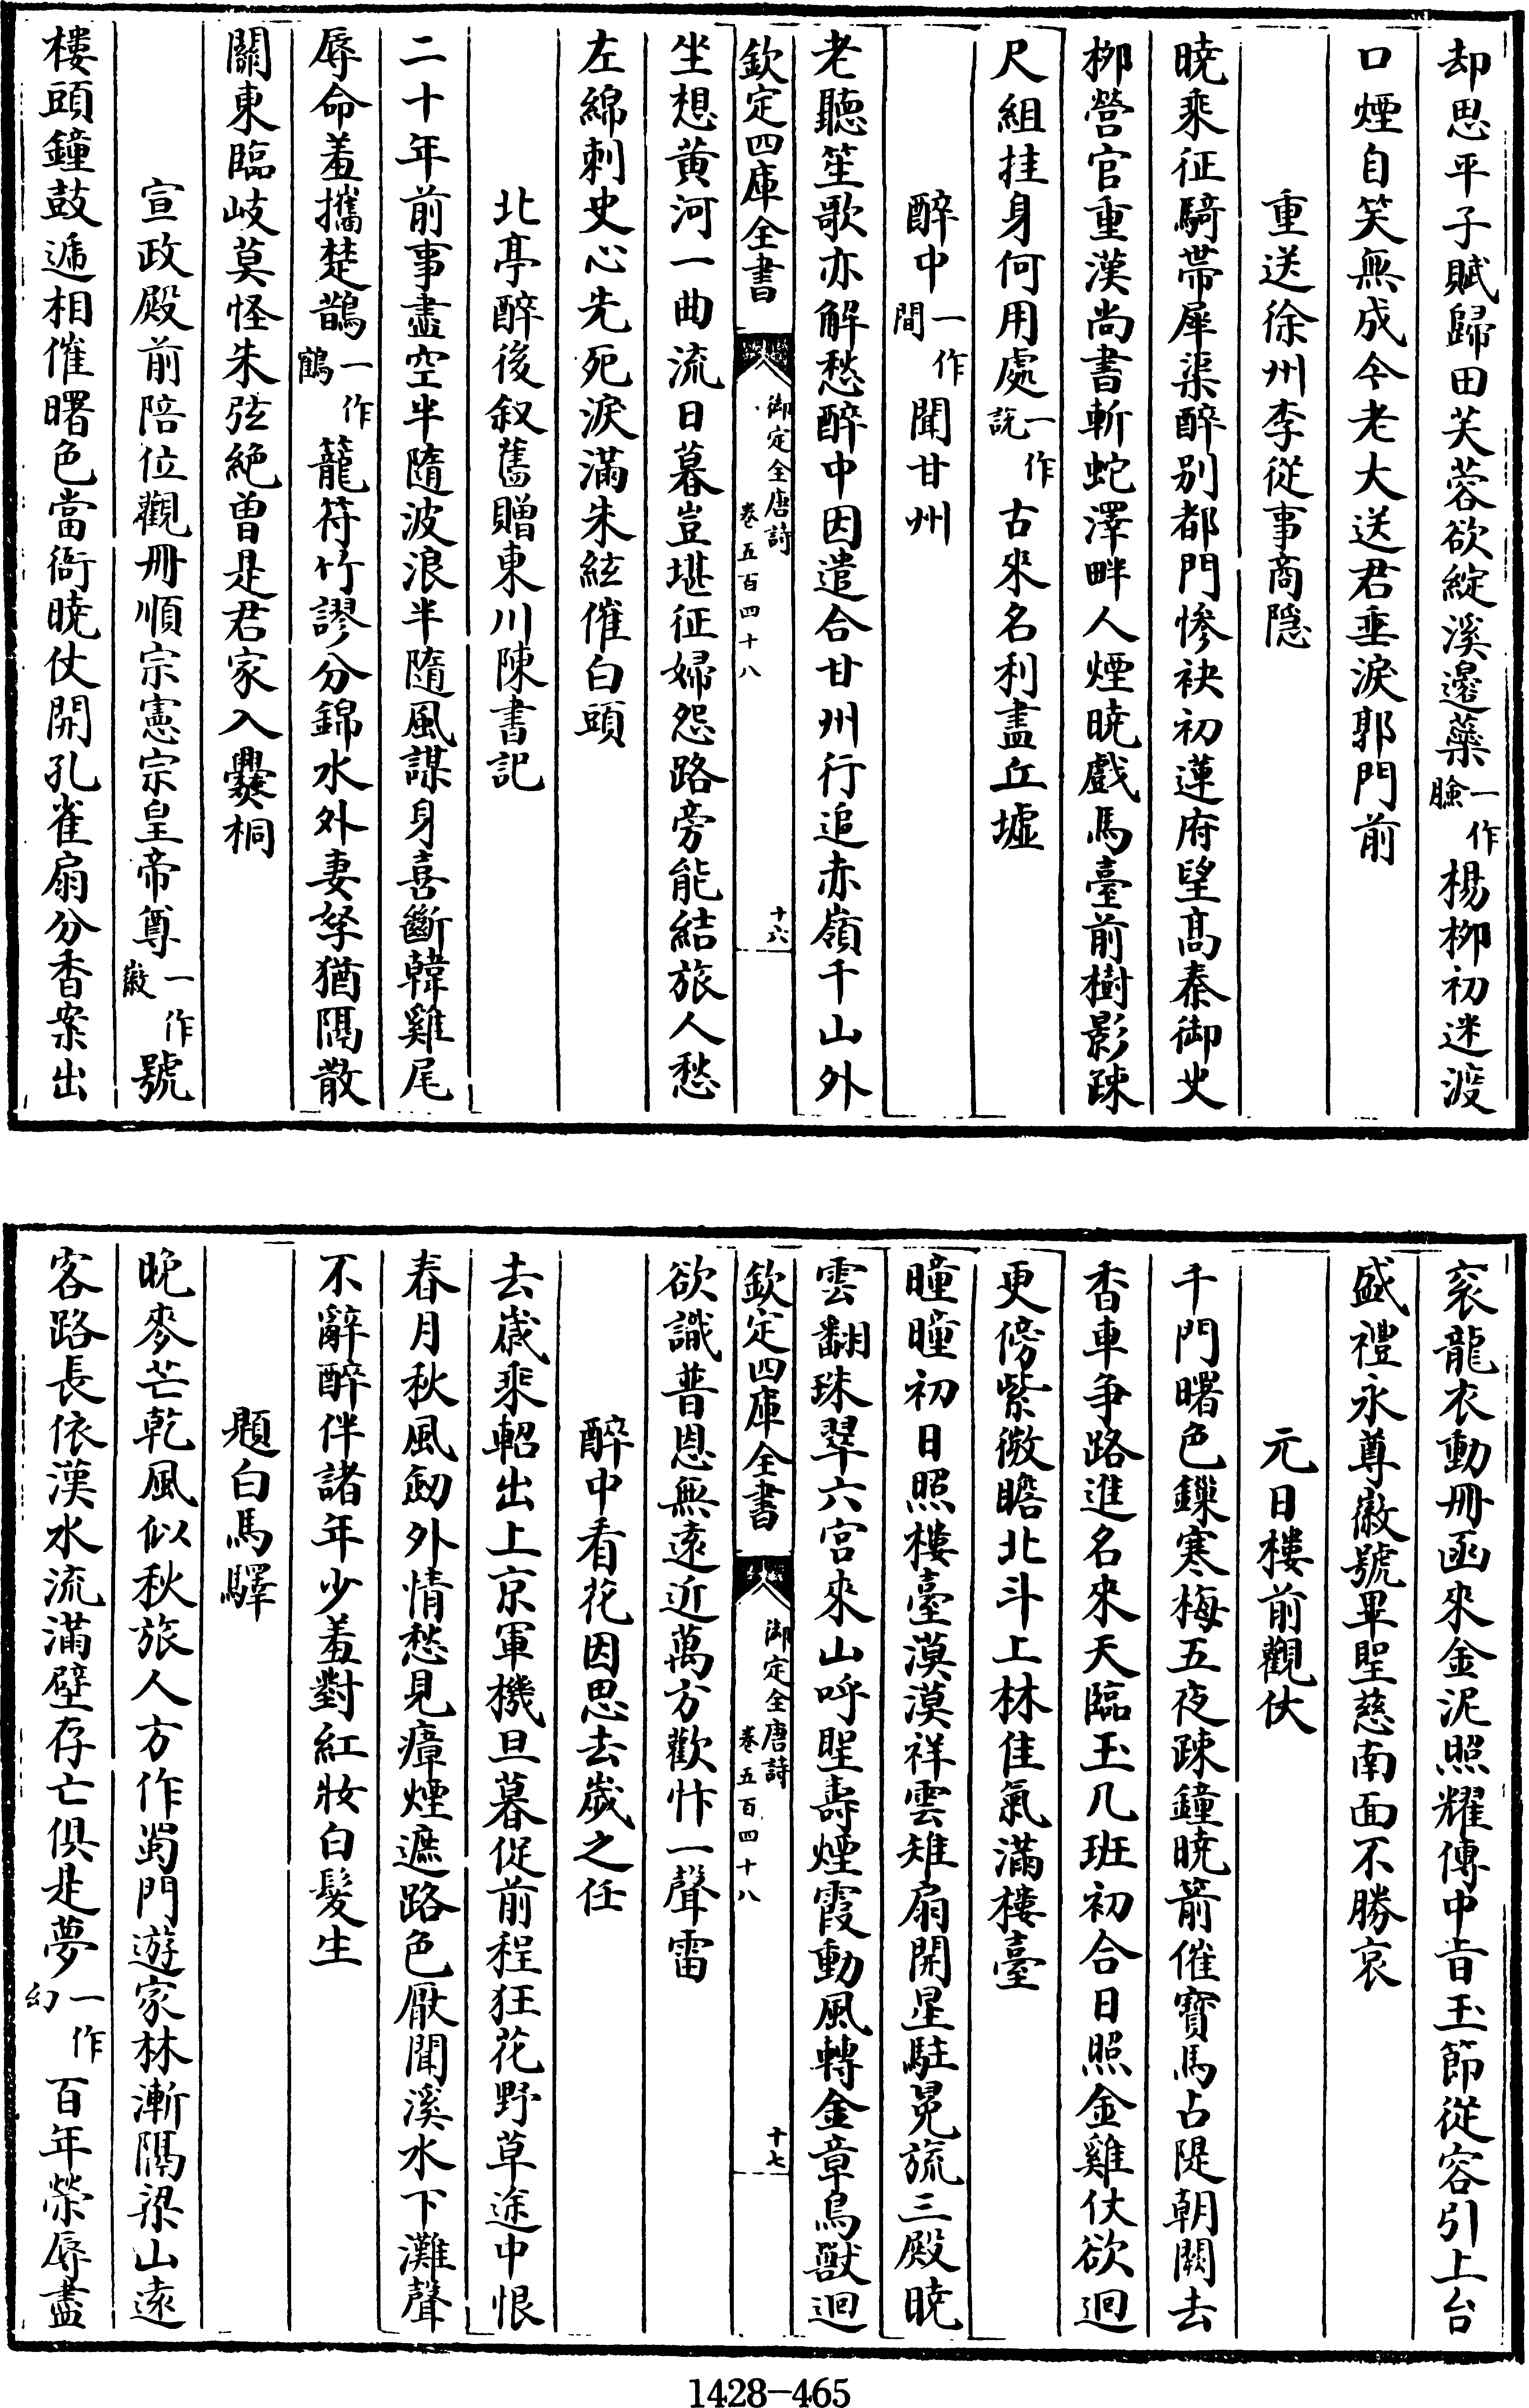 却思平子賦歸田芙蓉欲綻溪邊蘂一作臉楊柳初迷渡
口煙自笑無成今老大送君垂淚郭門前
重送徐州李從事商隱
曉乘征騎帶犀渠醉別都門慘袂初蓮府望高秦御史
柳營官重漢尚書斬蛇澤畔人煙曉戲馬臺前樹影疎
尺組挂身何用處一作說古來名利盡丘墟
醉中一作間聞甘州
老聽笙歌亦解愁醉中因遣合甘州行追赤嶺千山外
欽定四庫全書 御定全唐詩 卷五百四十八 十六
坐想黃河一曲流日暮豈堪征婦怨路旁能結旅人愁
左綿刺史心先死淚滿朱絃催白頭
北亭醉後叙舊贈東川陳書記
二十年前事盡空半隨波浪半隨風謀身喜斷韓雞尾
辱命羞攜楚鵲一作鶴籠符竹謬分錦水外妻孥猶隔散
關東臨岐莫怪朱弦絶曽是君家入爨桐
宣政殿前陪位觀冊順宗憲宗皇帝尊一作徽號
樓頭鐘鼓遞相催曙色當衙曉仗開孔雀扇分香案出
袞龍衣動冊函來金泥照耀傳中旨玉節從容引上台
盛禮永尊徽號畢聖慈南面不勝哀
元日樓前觀仗
千門曙色鏁寒梅五夜疎鐘曉箭催寶馬占隄朝闕去
香車争路進名來天臨玉几班初合日照金雞仗欲迴
更傍紫微瞻北斗上林佳氣滿樓臺
曈曈初日照樓臺漠漠祥雲雉扇開星駐冕旒三殿曉
雲翻珠翠六宮來山呼聖壽煙霞動風轉金章鳥獸迴
欽定四庫全書 御定全唐詩 卷五百四十八 十七
欲識普恩無遠近萬方歡忭一聲雷
醉中看花因思去歲之任
去歲乘軺出上京軍機旦暮促前程狂花野草途中恨
春月秋風劒外情愁見瘴煙遮路色厭聞溪水下灘聲
不辭醉伴諸年少羞對紅妝白髮生
題白馬驛
晚麥芒乾風似秋旅人方作蜀門遊家林漸隔梁山遠
客路長依漢水流滿壁存亡俱是夢一作幻百年榮辱盡
1428-465